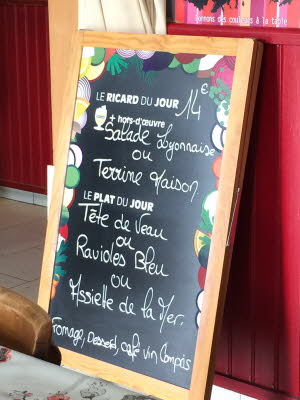 Donnons des couleurs à la table
LE RICARD DU JOUR 14€
+ hors-d'œuvre
Salade Lyonnaise
ou
Terrine Maison
LE PLAT DU JOUR
Tête de Veau
ou
Ravioles Bleu
ou
Assiette de la Mer.
Fromage, Dessert, café vin Compris